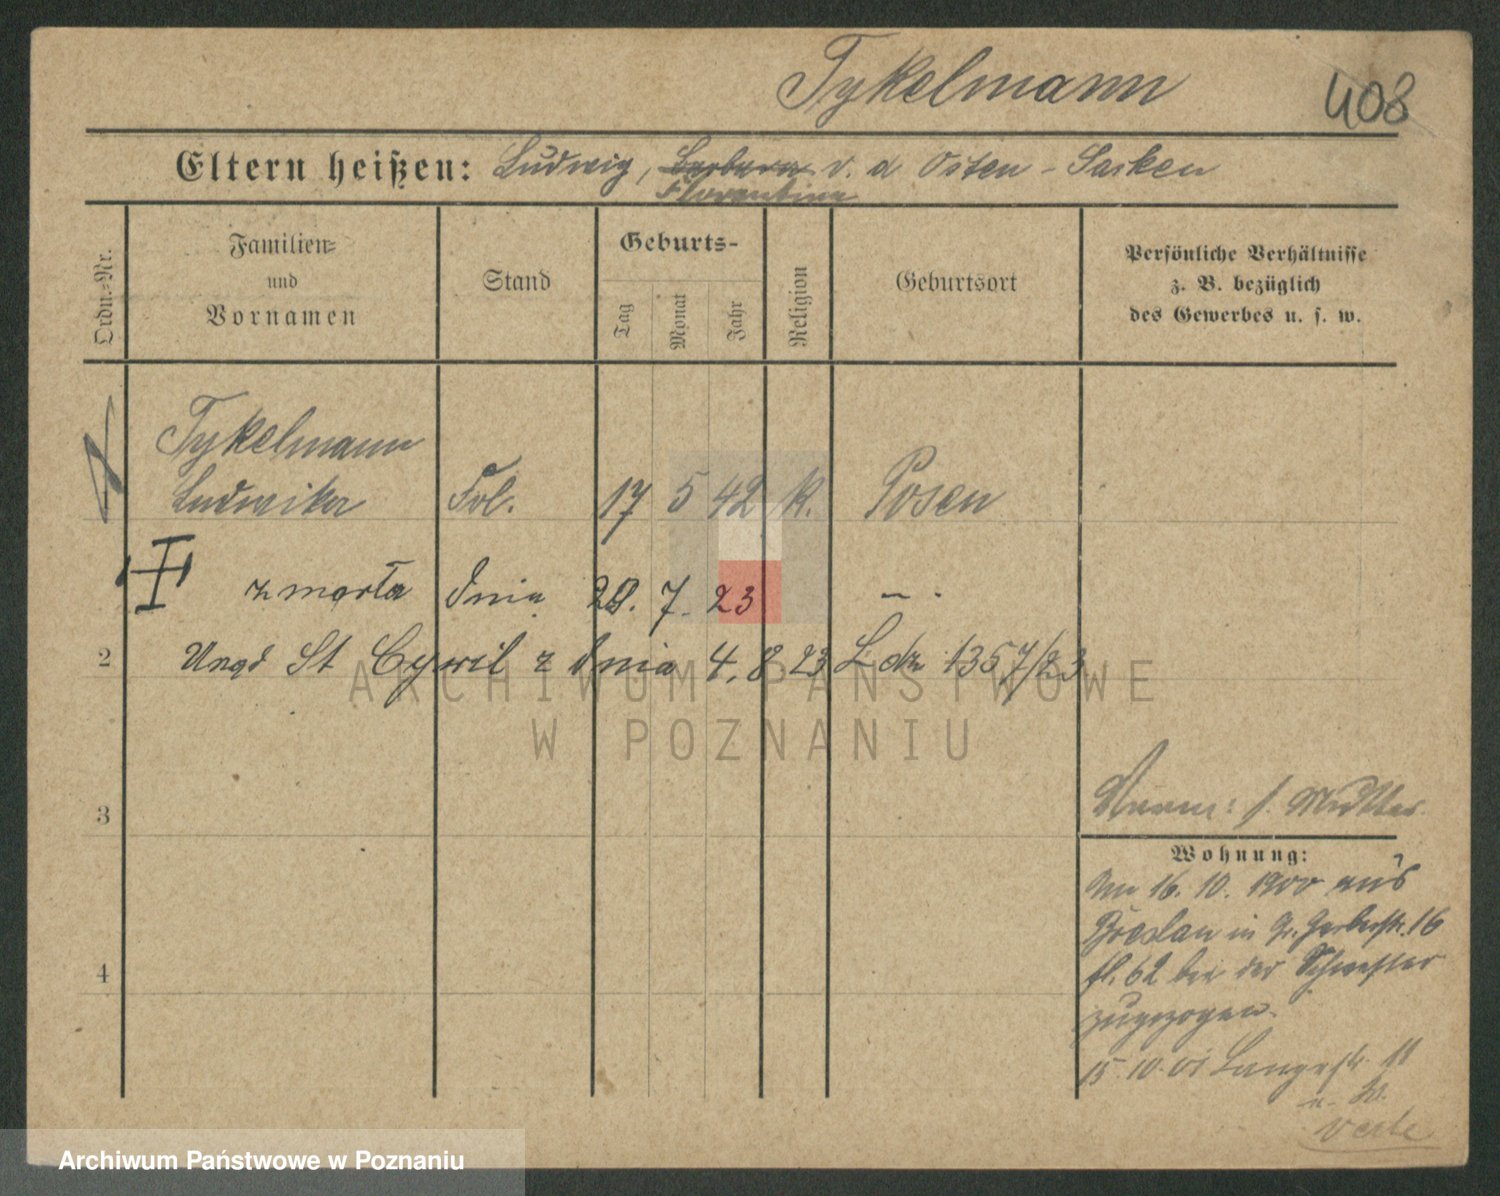 Tykelmann
408
Eltern heißen: Ludwig, Barbara v. d Osten - Sacken
Florentine
Ordn.-Nr.
Familien-
und
Vornamen
Stand
Geburts-
Tag
Monat
Jahr
Religion
Geburtsort
Persönliche Verhältnisse
z. B. bezüglich
des Gewerbes u. s. w.
Tykelmann
Ludwika Frl. 17 5 42 k. Posen
zmarła dnia 28. 7. 23 - .
2 Urząd St Cywil z dnia 4. 8 23 L dz 1357/23
ARCHIWUM PAŃSTWOWE
W POZNANIU
3
Mutter
Wohnung:
Am 16. 10. 1900 aus
Breslau in Gr. Gerberstr. 16
fl. 62 bei der Schwester
zugezogen
15. 10. 01 Langestr. 11
4
verte
Archiwum Państwowe w Poznaniu